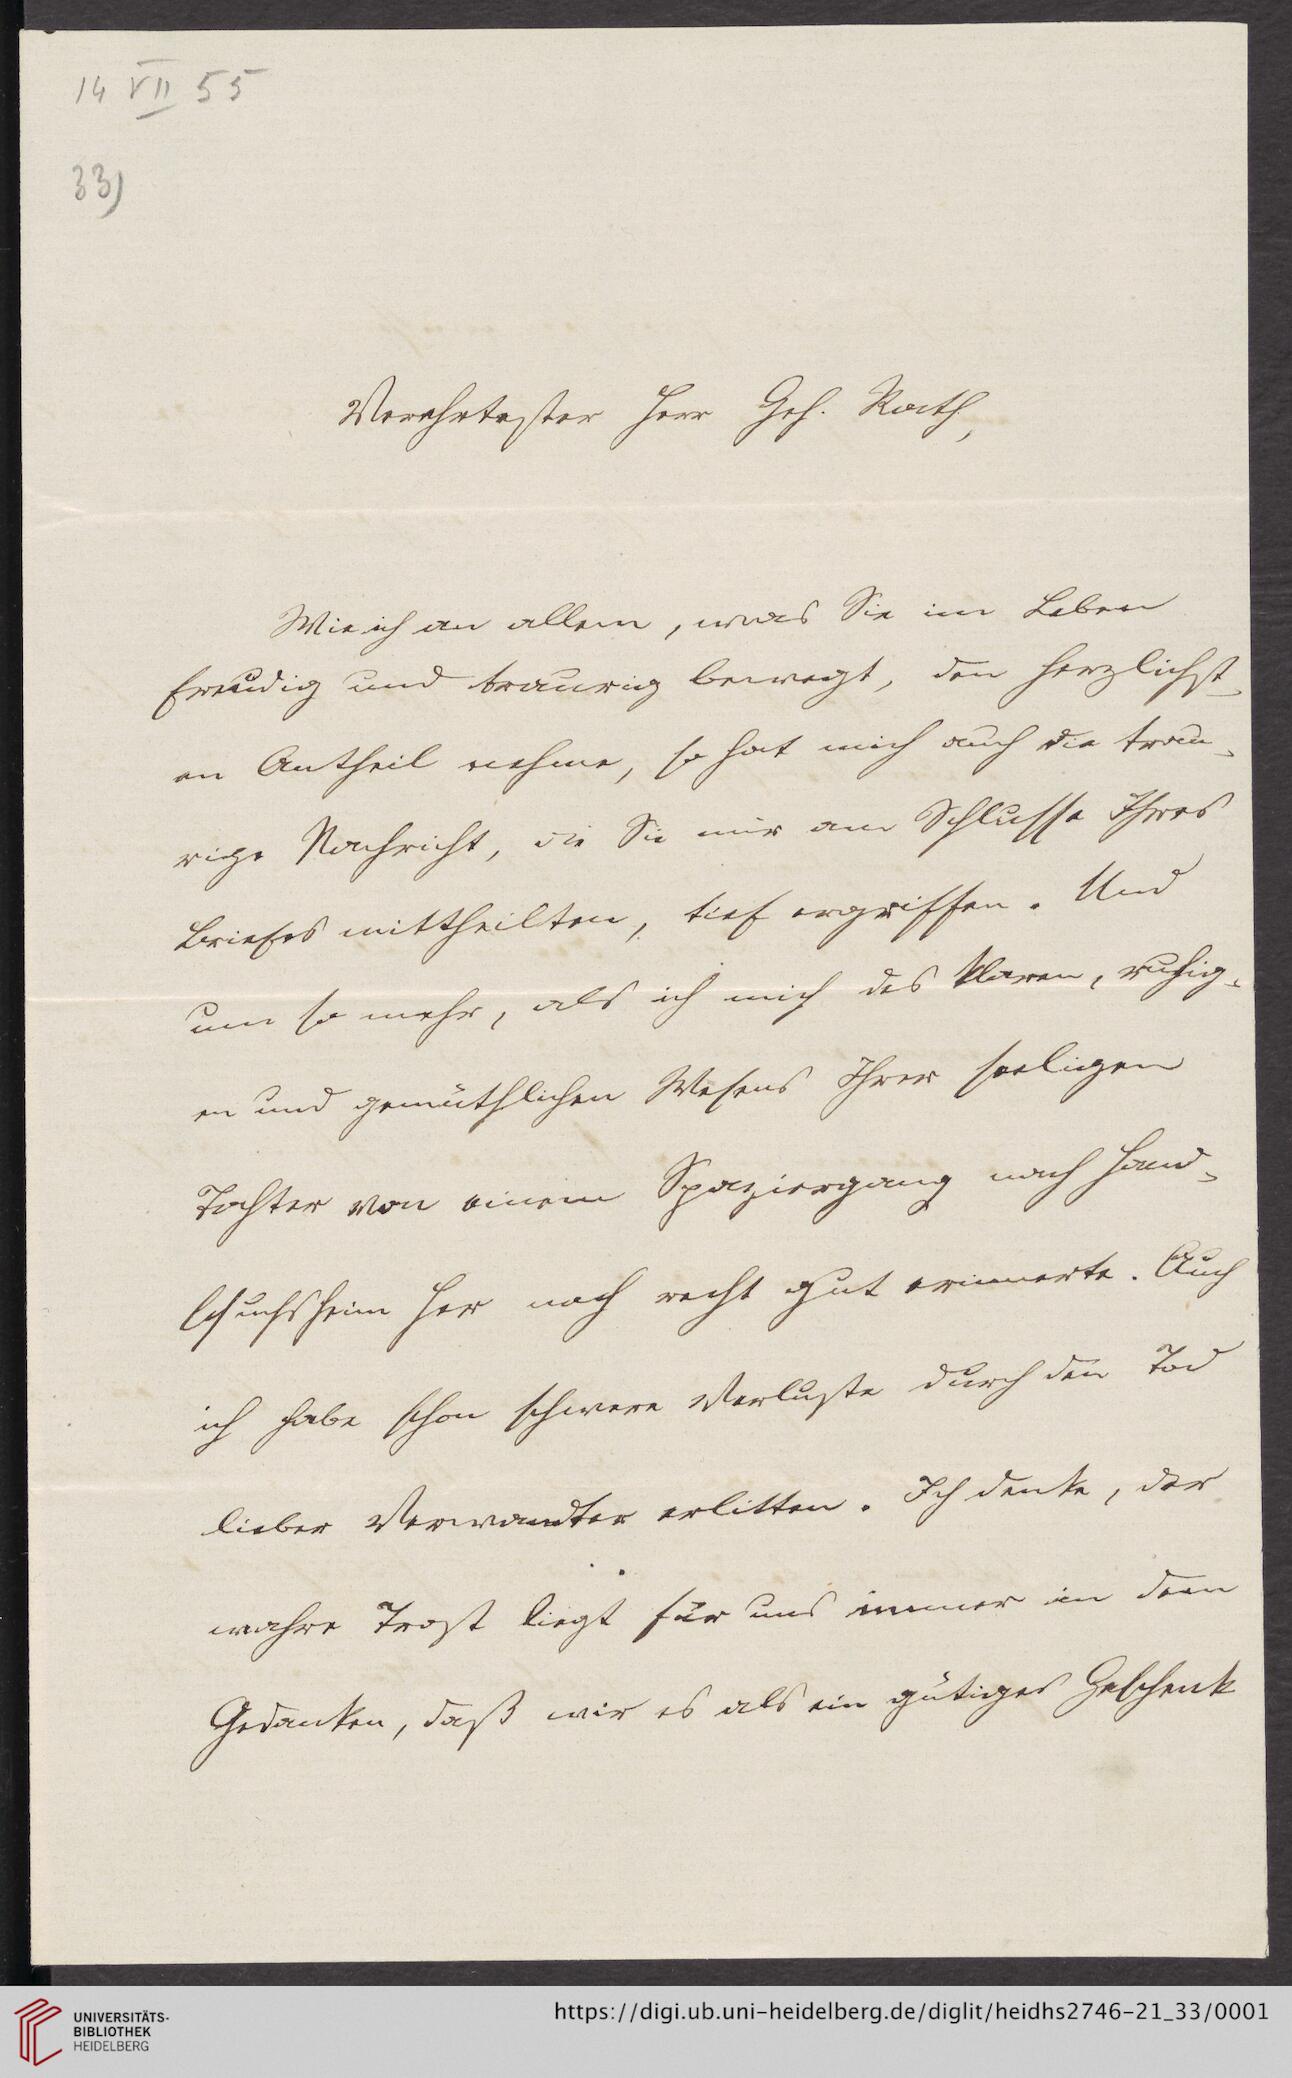 14 VII 55
33)
Verehrtester Herr Geh. Rath,
Wie ich an allem, was Sie im Leben
freudig und traurig bewegt, den herzlichst-
en Antheil nehme, so hat mich auch die trau-
rige Nachricht, die Sie mir am Schlusse Ihres
Briefes mittheilten, tief ergriffen. Und
um so mehr, als ich mich des klaren, ruhig-
en und gemüthlichen Wesens Ihrer seeligen
Tochter von einem Spaziergang nach Hand-
schuchsheim her noch recht gut erinnerte. Auch
ich habe schon schwere Verluste durch den Tod
lieber Verwandter erlitten. Ich denke, der
wahre Trost liegt für uns immer in dem
Gedanken, daß wir es als ein gütiges Geschenk
UNIVERSITÄTS-
BIBLIOTHEK
HEIDELBERG
https://digi.ub.uni-heidelberg.de/diglit/heidhs2746-21_33/0001